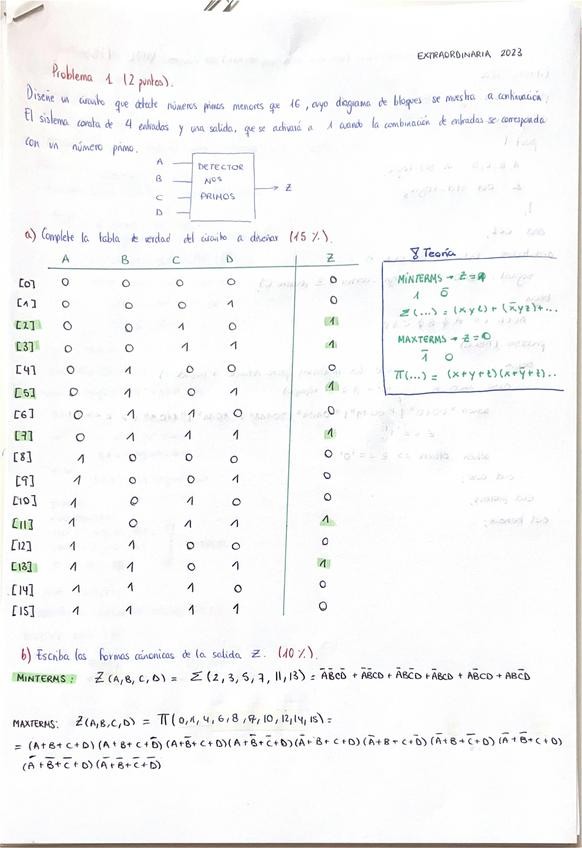 EXTRAORDINARIA 2023
Problema 1 (2 puntos).
Diseñe un circuito que detecte números primos menores que 16, cuyo diagrama de bloques se muestra a continuación:
El sistema consta de 4 entradas y una salida, que se activará a 1 cuando la combinación de entradas se corresponda
con un número primo.
A
B
C
D
DETECTOR
NOS
PRIMOS
Z
a) Complete la tabla de verdad del circuito a diseñar (15%).
A B C D Z
[0] 0 0 0 0 0
[1] 0 0 0 1 0
[2] 0 0 1 0 1
[3] 0 0 1 1 1
[4] 0 1 0 0 0
[5] 0 1 0 1 1
[6] 0 1 1 0 0
[7] 0 1 1 1 1
[8] 1 0 0 0 0
[9] 1 0 0 1 0
[10] 1 0 1 0 0
[11] 1 0 1 1 1
[12] 1 1 0 0 0
[13] 1 1 0 1 1
[14] 1 1 1 0 0
[15] 1 1 1 1 0
Teoría
MINTERMS → Z =
1 0̄
Σ(...) = (xyz) + (x̄yz)+...
MAXTERMS → Z = 0
1̄ 0
Π(...) = (x+y+z)(x+ȳ+z)..
b) Escriba las formas canónicas de la salida Z. (10%).
MINTERMS: Z(A,B,C,D) = Σ(2,3,5,7,11,13) =
MAXTERMS: Z(A,B,C,D) = Π(0,1,4,6,8,9,10,12,14,15) =
= (A+B+C+D)(A+B+C+D̄)(A+B̄+C+D)(A+B̄+C̄+D)(Ā+B+C+D)(Ā+B+C+D̄)(Ā+B+C̄+D)(Ā+B̄+C+D)
(Ā+B̄+C̄+D)(Ā+B̄+C̄+D̄)